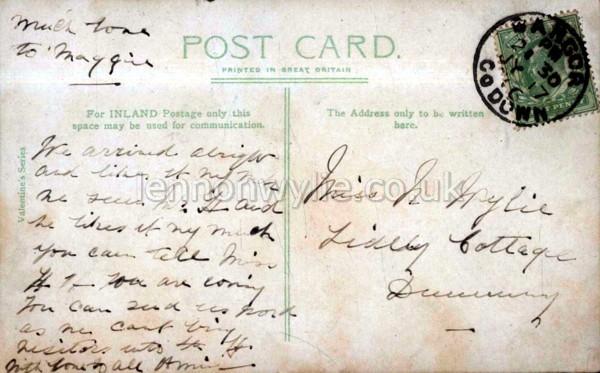 Much love
to Maggie
POST CARD.
PRINTED IN GREAT BRITAIN
BANGOR
CO DOWN
For INLAND Postage only this
space may be used for communication.
The Address only to be written
here.
Valentine's Series
We arrived alright
and likes it very much
we seen Mr H and
he likes it very much
you can tell Miss
H if you are coming
You can send us word
as we cant bring
visitors into the H
with love to all Annie
Miss Wylie
Cottage
lennonwylie.co.uk